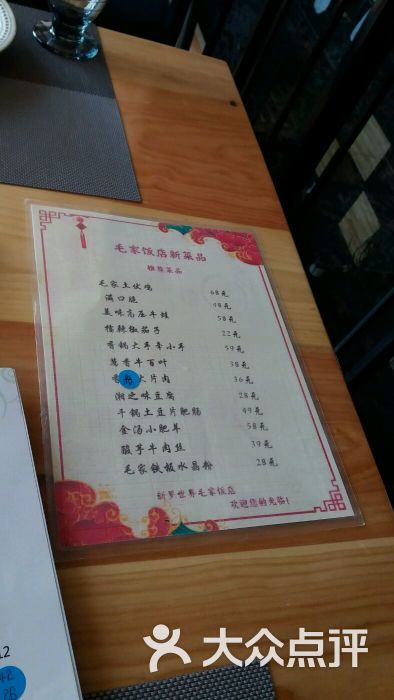 毛家饭店新菜品
推荐菜品
毛家土伏鸡 68元
满口脆 48元
美味高压牛蛙 58元
擂辣椒茄子 22元
香锅大手牵小手 59元
葱香牛百叶 38元
香 大片肉 36元
湘之味豆腐 28元
干锅土豆片肥肠 49元
金汤小肥羊 58元
酸芋牛肉丝 39元
毛家铁板水晶粉 28元
新罗世界毛家饭店
欢迎您的光临!
12
大众点评